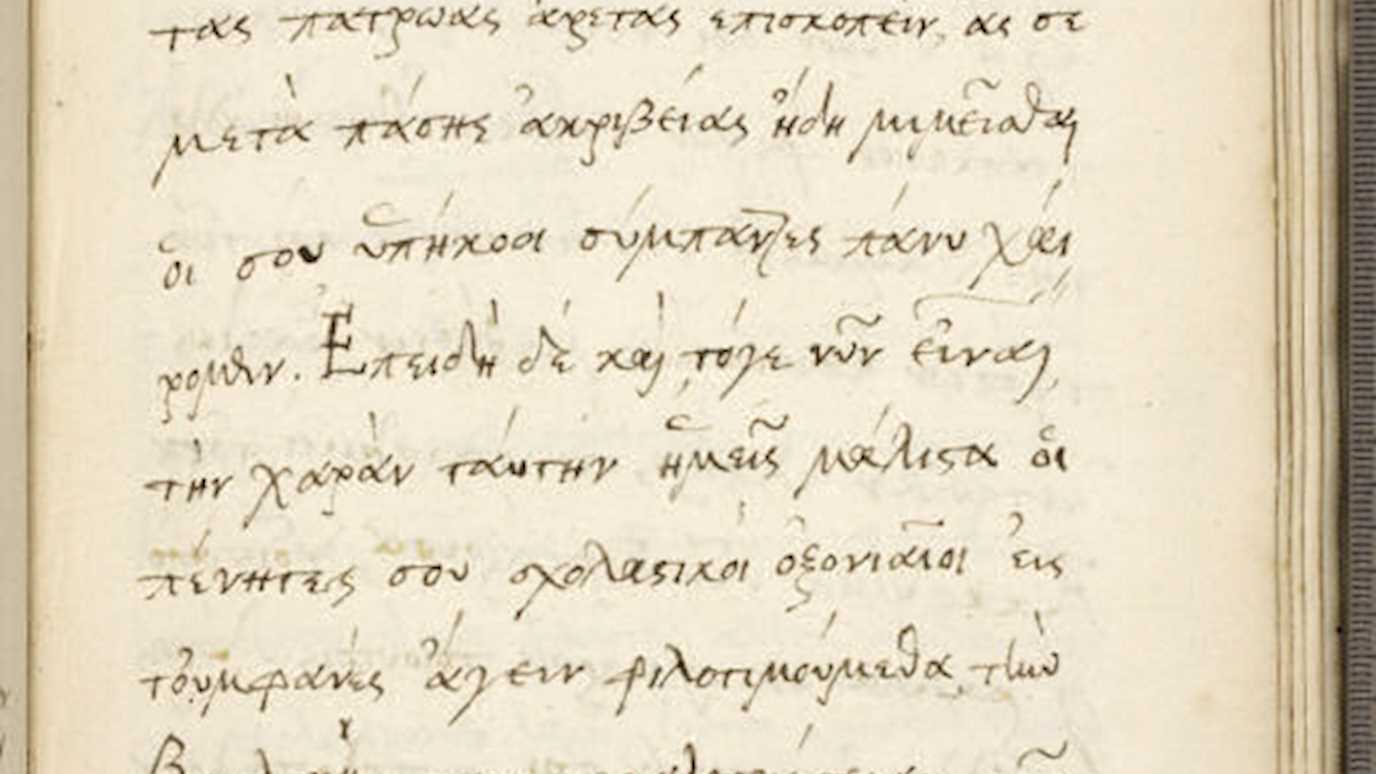 τας πατρῴας ἀρετὰς ἐπισκοπεῖν, ἅς σε
μετὰ πάσης ἀκριβείας ἤδη μιμεῖσθαι
οἱ σου ὑπήκοοι σύμπαντες πάνυ χαί
ρομεν. Ἐπειδὴ δὲ καὶ τόγε νῦν εἶναι,
τὴν χαρὰν ταύτην ἡμεῖς μάλιστα οἱ
πένητες σου σχολαστικοὶ ὀξονιαῖοι εἰς
τοὐμφανές ἄγειν φιλοτιμούμεθα, τὴν